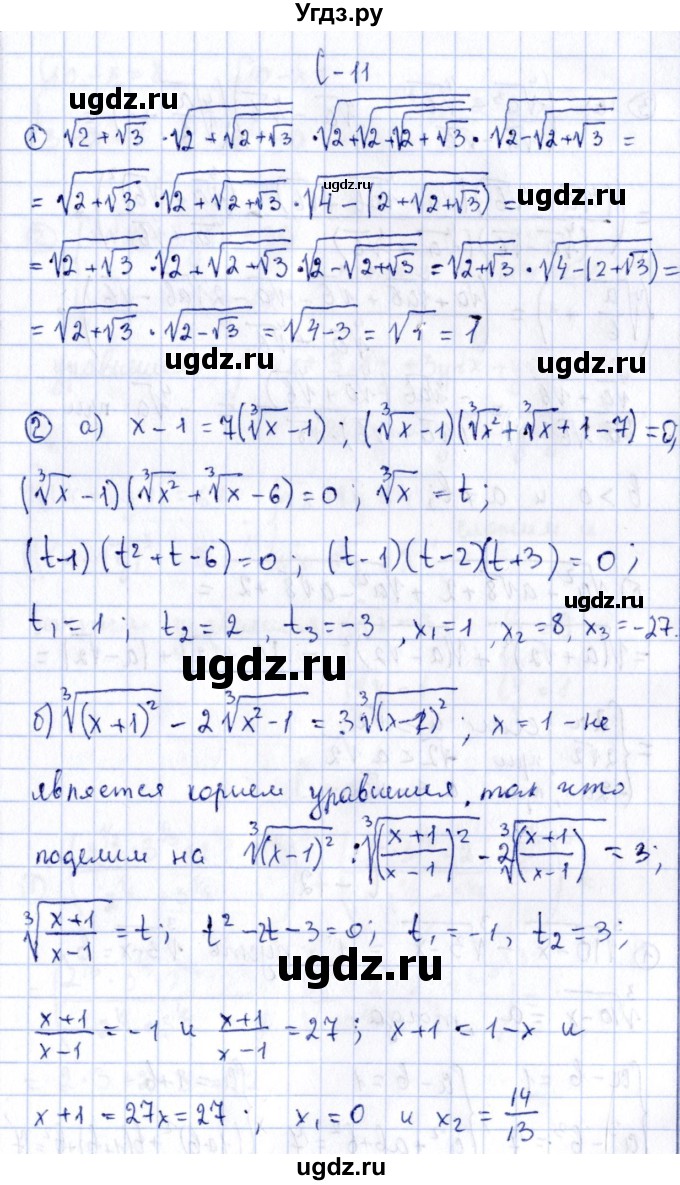 Угдз.ру
С-11
ugdz.ru
① √(2+√3) · √(2+√(2+√3)) · √(2+√(2+√(2+√3))) · √(2-√(2+√3)) =
ugdz.ru
= √(2+√3) · √(2+√(2+√3)) · √(4-(2+√(2+√3))) =
ugdz.ru
= √(2+√3) · √(2+√(2+√3)) · √(2-√(2+√3)) = √(2+√3) · √(4-(2+√3)) =
= √(2+√3) · √(2-√3) = √(4-3) = √1 = 1
ugdz.ru
ugdz.ru
② а) x-1 = 7(∛x-1); (∛x-1)(∛x²+∛x+1-7)=0,
(∛x-1)(∛x²+∛x-6)=0; ∛x = t;
(t-1)(t²+t-6)=0; (t-1)(t-2)(t+3)=0;
ugdz.ru
t₁=1; t₂=2, t₃=-3, x₁=1, x₂=8, x₃=-27.
ugdz.ru
б) ∛(x+1)² - 2∛(x²-1) = 3∛(x-1)²; x=1-не
является корнем уравнения, так что
поделим на ∛(x-1)² : ∛((x+1)/(x-1))² - 2∛((x+1)/(x-1)) = 3;
ugdz.ru
∛((x+1)/(x-1)) = t; t²-2t-3=0; t₁=-1, t₂=3;
ugdz.ru
(x+1)/(x-1) = -1 и (x+1)/(x-1) = 27; x+1 = 1-x и
x+1 = 27x=27; x₁=0 и x₂ = 14/13
ugdz.ru
ugdz.ru